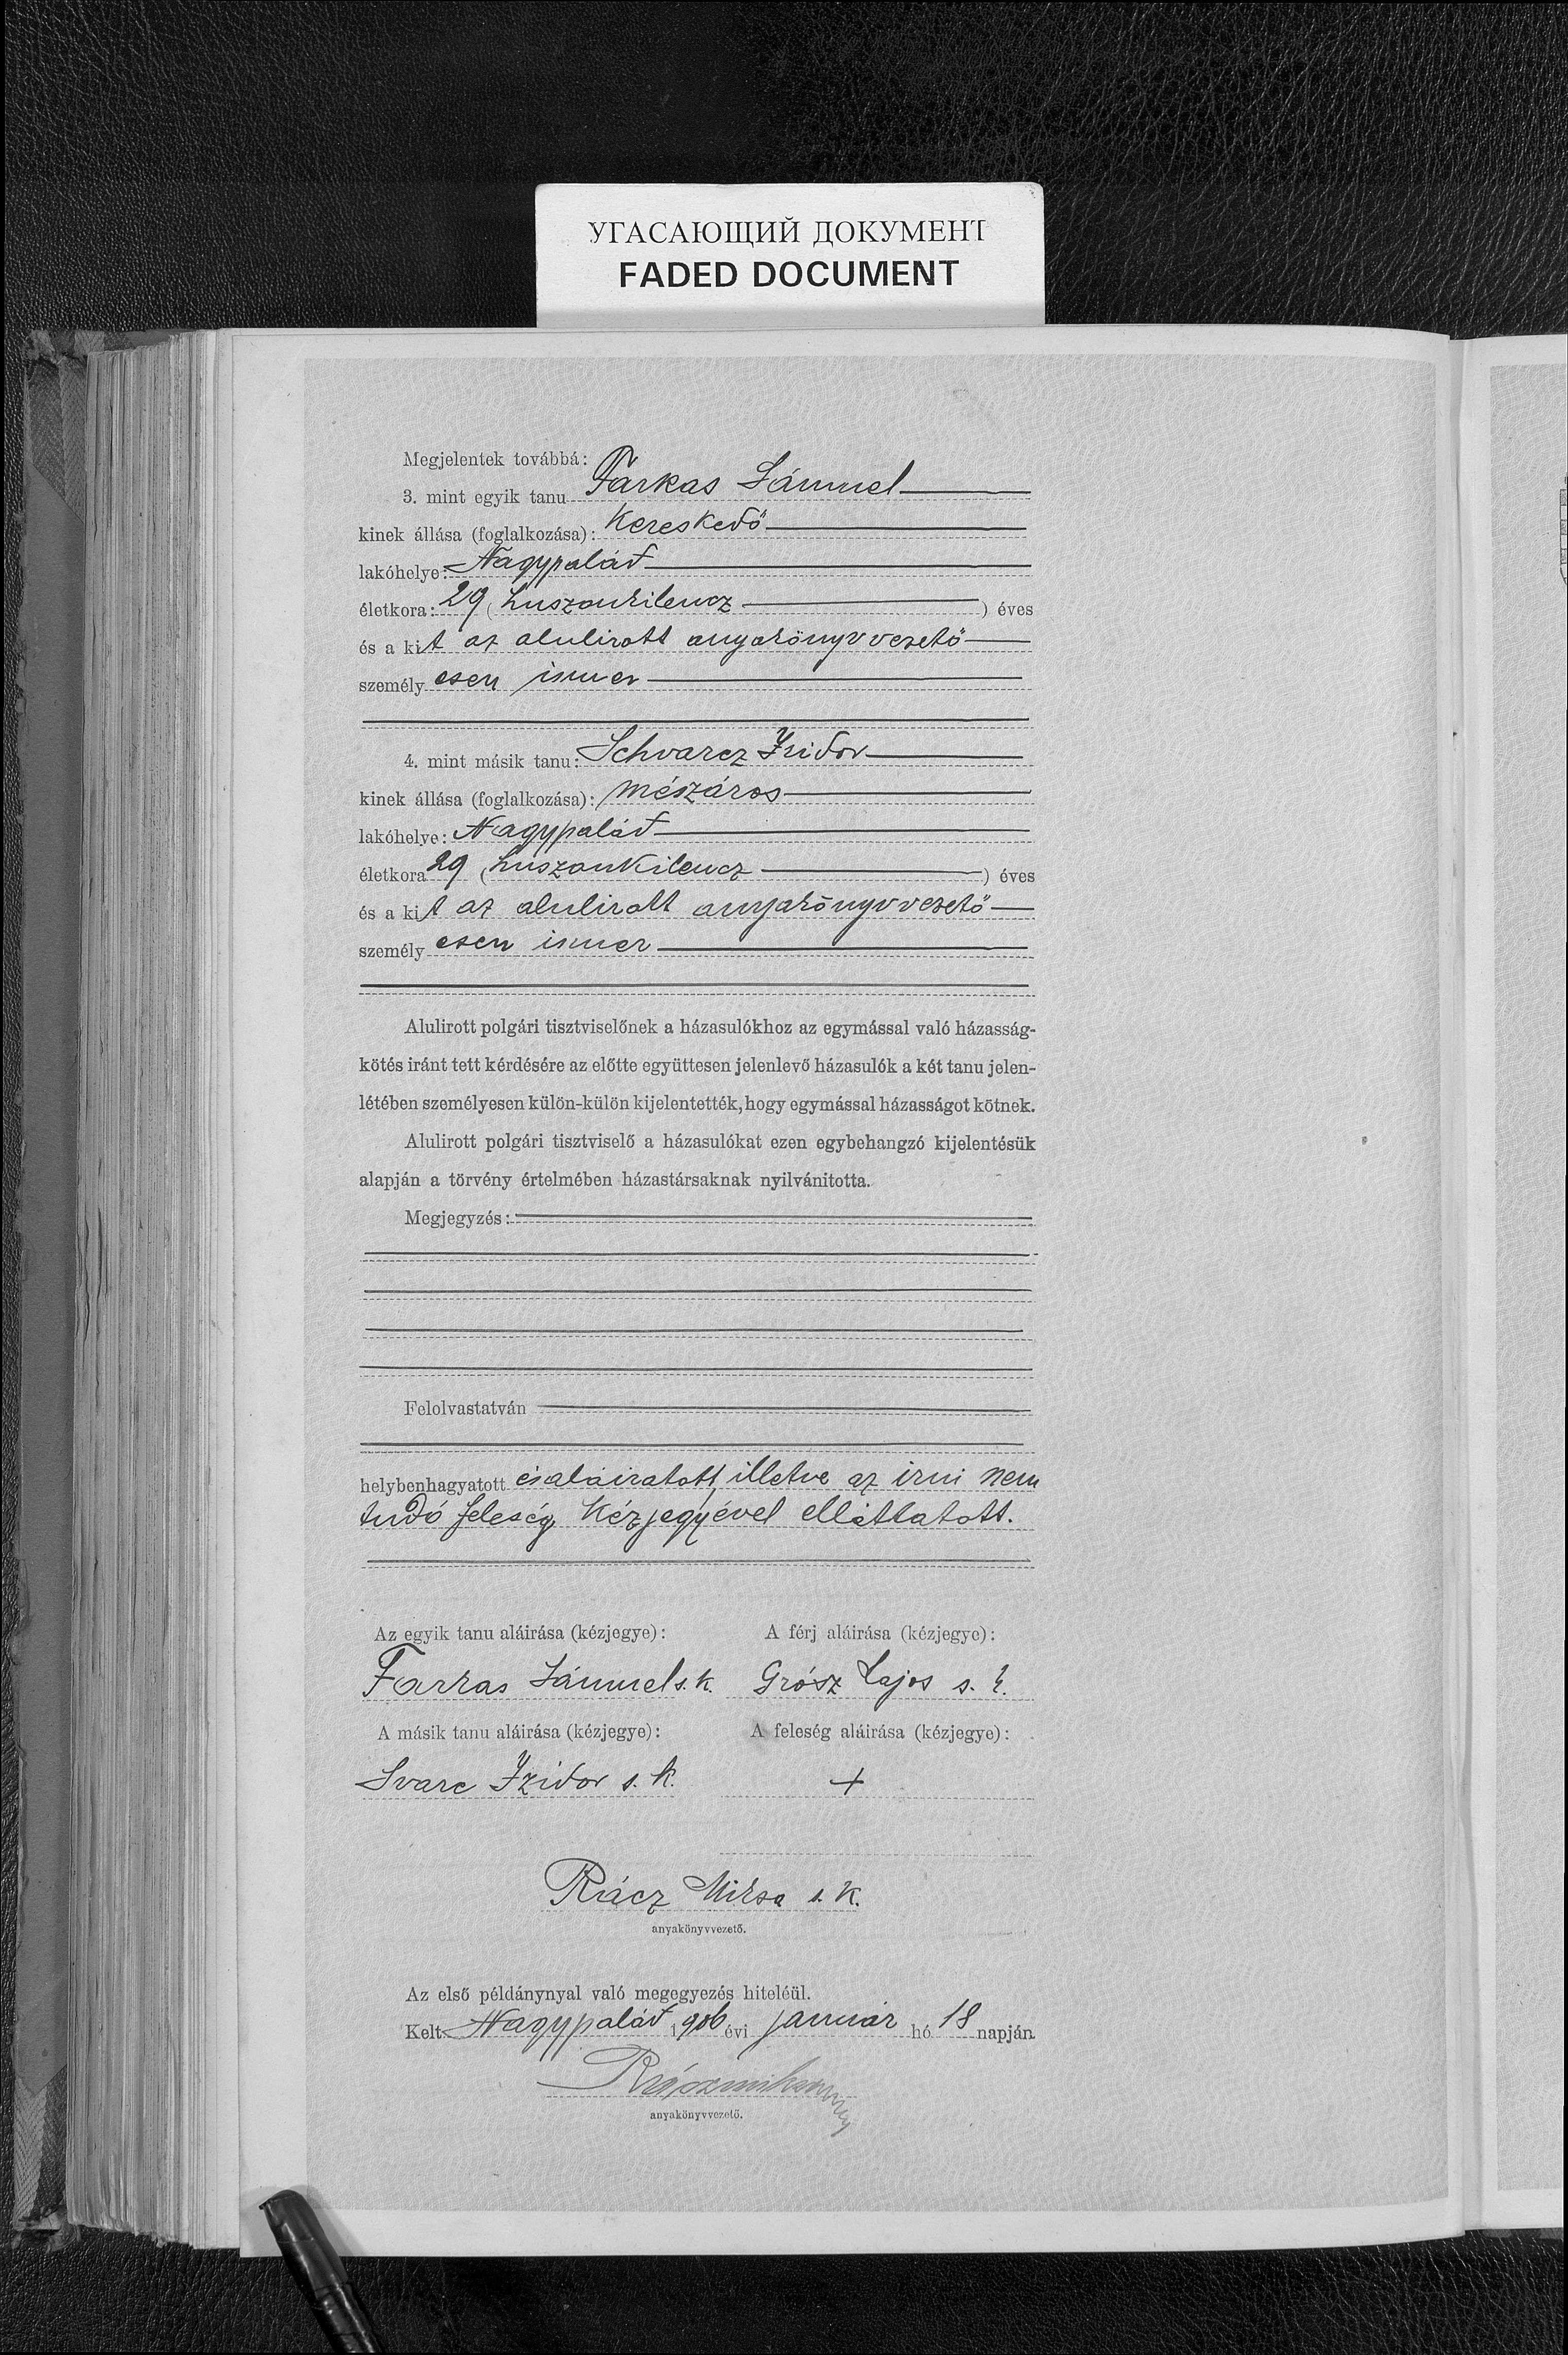 УГАСАЮЩИЙ ДОКУМЕНТ
FADED DOCUMENT
Megjelentek továbbá:
3. mint egyik tanu Farkas Sámuel
kinek állása (foglalkozása): Kereskedő
lakóhelye: Nagypalád
életkora: 29 (huszonkilencz) éves
és a kit az alulirott anyakönyvvezető
személyesen ismer
4. mint másik tanu: Schvarcz Izidor
kinek állása (foglalkozása): mészáros
lakóhelye: Nagypalád
életkora 29 (huszonkilencz) éves
és a kit az alulirott anyakönyvvezető
személyesen ismer
Alulirott polgári tisztviselőnek a házasulókhoz az egymással való házasság-
kötés iránt tett kérdésére az előtte együttesen jelenlevő házasulók a két tanu jelen-
létében személyesen külön-külön kijelentették, hogy egymással házasságot kötnek.
Alulirott polgári tisztviselő a házasulókat ezen egybehangzó kijelentésük
alapján a törvény értelmében házastársaknak nyilvánitotta.
Megjegyzés:
Felolvastatván
helybenhagyatott és aláiratott, illetve az irni nem
tudó feleség kézjegyével elláttatott.
Az egyik tanu aláirása (kézjegye): A férj aláirása (kézjegye):
Farkas Sámuel s. k. Grósz Lajos s. k.
A másik tanu aláirása (kézjegye): A feleség aláirása (kézjegye):
Svarc Izidor s. k. +
Rácz Miksa s. k.
anyakönyvvezető.
Az első példánynyal való megegyezés hiteléül.
Kelt Nagypalád 1906 évi január hó 18 napján.
anyakönyvvezető.